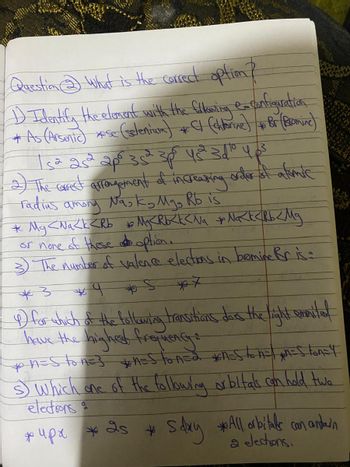 Question ② What is the correct option?
1) Identify the element with the following e- configuration
* As (Arsenic) * se (selenium) * Cl (chlorine) * Br (Bromine)
1s² 2s² 2p⁶ 3s² 3p⁶ 4s² 3d¹⁰ 4p⁵
2) The correct arrangement of increasing order of atomic
radius among Na, K, Mg, Rb is
* Mg<Na<K<Rb * Mg<Rb<K<Na * Na<K<Rb<Mg
or none of these option.
3) The number of valence electrons in bromine Br is:
* 3 * 4 * 5 * 7
4) for which of the following transitions does the light emmited
have the highest frequency?
* n=5 to n=3 * n=5 to n=2 * n=5 to n=1 * n=5 to n=4
5) Which one of the following orbitals can hold two
electrons?
* 4px * 2s * 5dxy * All orbitals can contain
2 electrons.